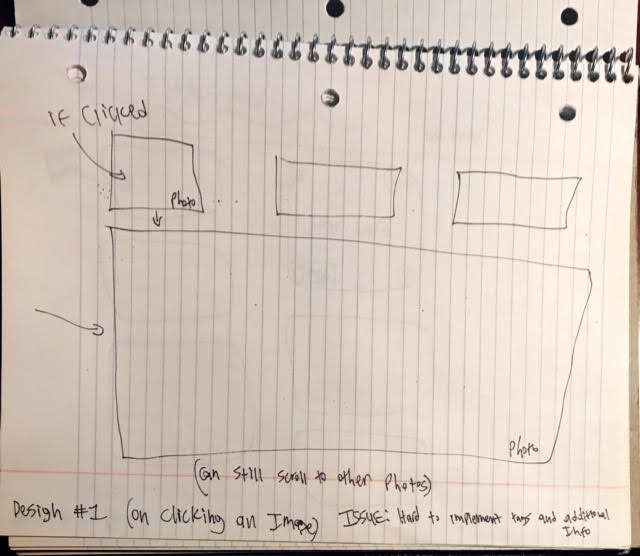 If Clicked
Photo
Photo
(Can still scroll to other Photos)
Design #1 (on clicking an Image) ISSUE: Hard to implement tags and additional
Info